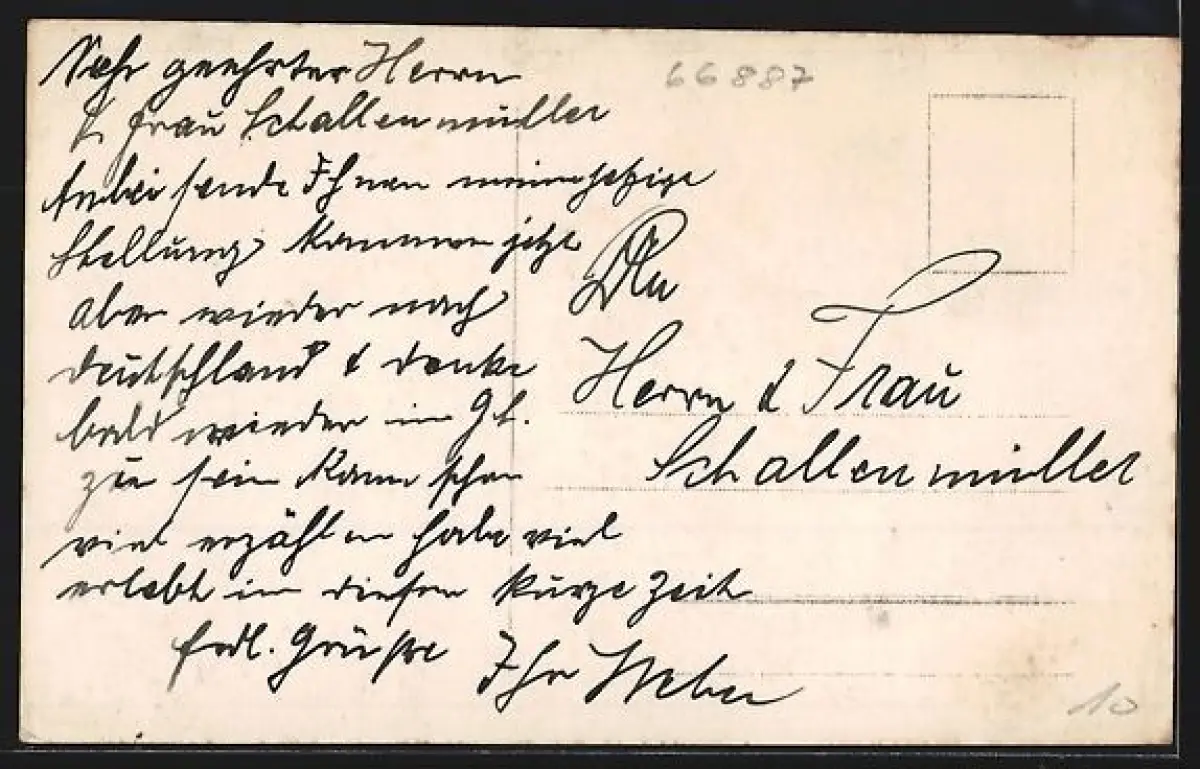 Sehr geehrter Herrn
& Frau Schallenmüller
Anbei sende Ihnen meine jetzige
Stellung kommen jetzt
aber wieder nach
Deutschland & denke
bald wieder in Gt.
zu sein kann schon
viel erzählen habe viel
erlebt in diesen kurze Zeit
frdl. Grüße Ihr Weber
66887
An
Herrn & Frau
Schallenmüller
10